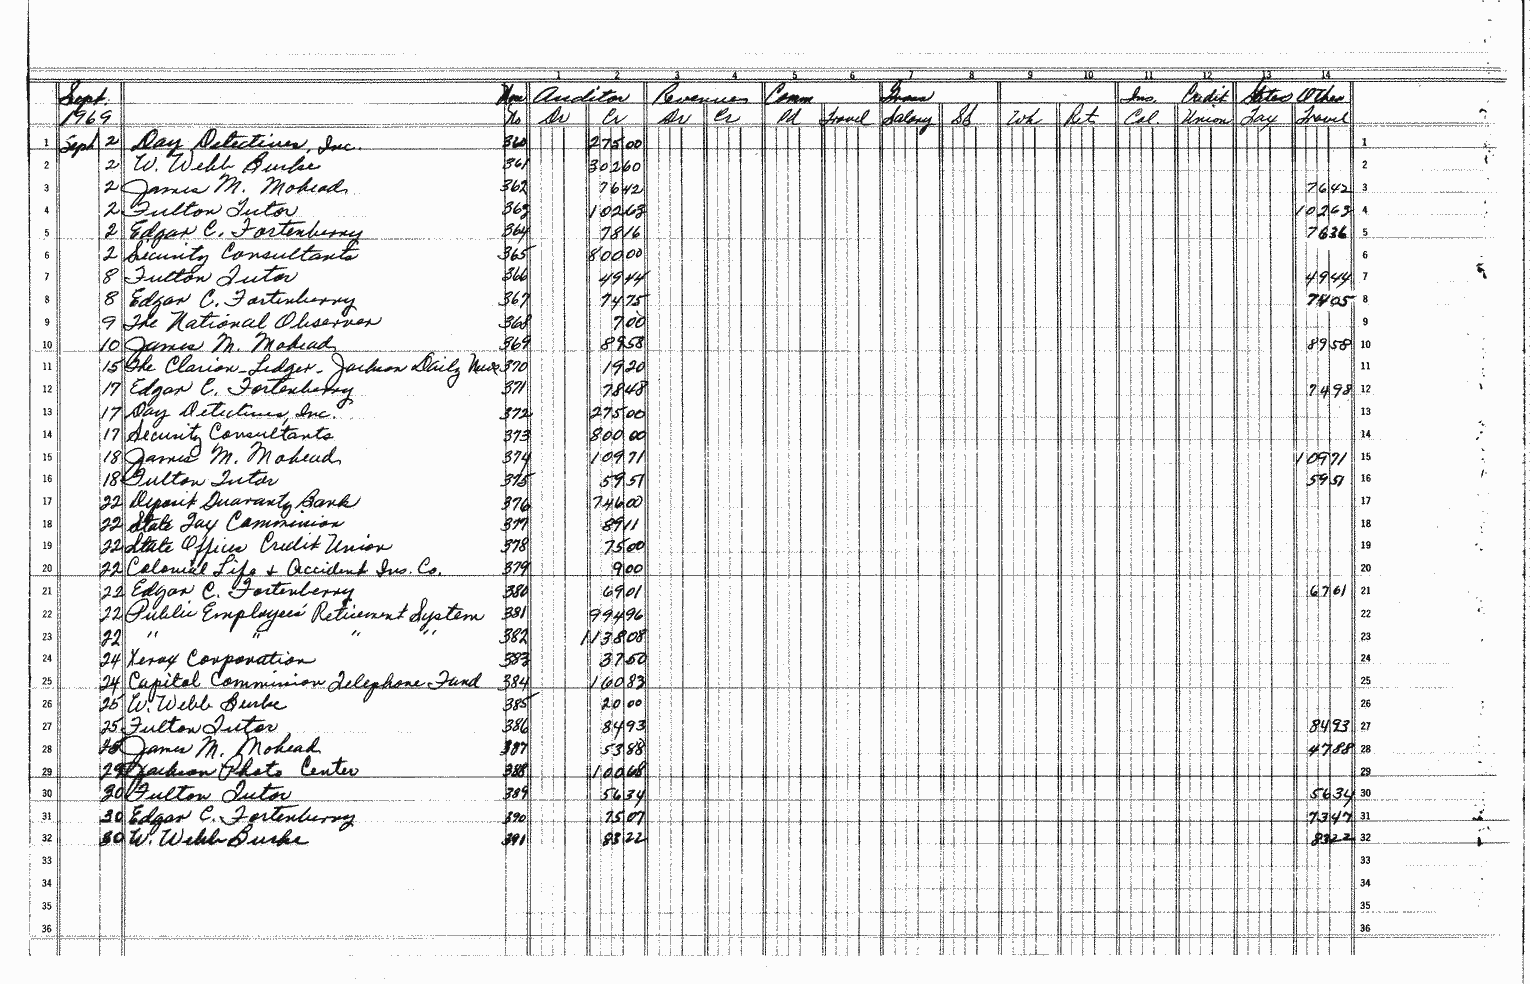 1 2 3 4 5 6 7 8 9 10 11 12 13 14
Sept. Auditor Revenues Comm Ins. Credit States Other
1969 No Dr Cr Dr Cr Pd Travel Salary SS Wh Ret Col. Union Tax Travel
1 Sept 2 Day Detectives, Inc. 360 275 00 1
2 2 W. Webb Burke 361 302 60 2
3 2 James M. Mohead 362 76 42 76 42 3
4 2 Fulton Tutor 363 102 63 102 63 4
5 2 Edgar C. Fortenberry 364 78 16 76 36 5
6 2 Security Consultants 365 800 00 6
7 8 Fulton Tutor 366 49 44 49 44 7
8 8 Edgar C. Fortenberry 367 74 75 74 05 8
9 9 The National Observer 368 7 00 9
10 10 James M. Mohead 369 89 58 89 58 10
11 15 The Clarion-Ledger - Jackson Daily News 370 19 20 11
12 17 Edgar C. Fortenberry 371 78 48 74 98 12
13 17 Day Detectives, Inc. 372 275 00 13
14 17 Security Consultants 373 800 00 14
15 18 James M. Mohead 374 109 71 109 71 15
16 18 Fulton Tutor 375 59 51 59 51 16
17 22 Deposit Guaranty Bank 376 746 00 17
18 22 State Tax Commission 377 89 11 18
19 22 State Offices Credit Union 378 75 00 19
20 22 Colonial Life & Accident Ins. Co. 379 9 00 20
21 22 Edgar C. Fortenberry 380 69 01 67 61 21
22 22 Public Employees' Retirement System 381 994 96 22
23 22 " " " " 382 1138 08 23
24 24 Xerox Corporation 383 37 50 24
25 24 Capitol Commission Telephone Fund 384 160 83 25
26 25 W. Webb Burke 385 20 00 26
27 25 Fulton Tutor 386 84 93 84 93 27
28 James M. Mohead 387 53 88 47 88 28
29 29 Jackson Photo Center 388 100 68 29
30 30 Fulton Tutor 389 56 34 56 34 30
31 30 Edgar C. Fortenberry 390 75 07 73 47 31
32 30 W. Webb Burke 391 83 22 83 22 32
33 33
34 34
35 35
36 36